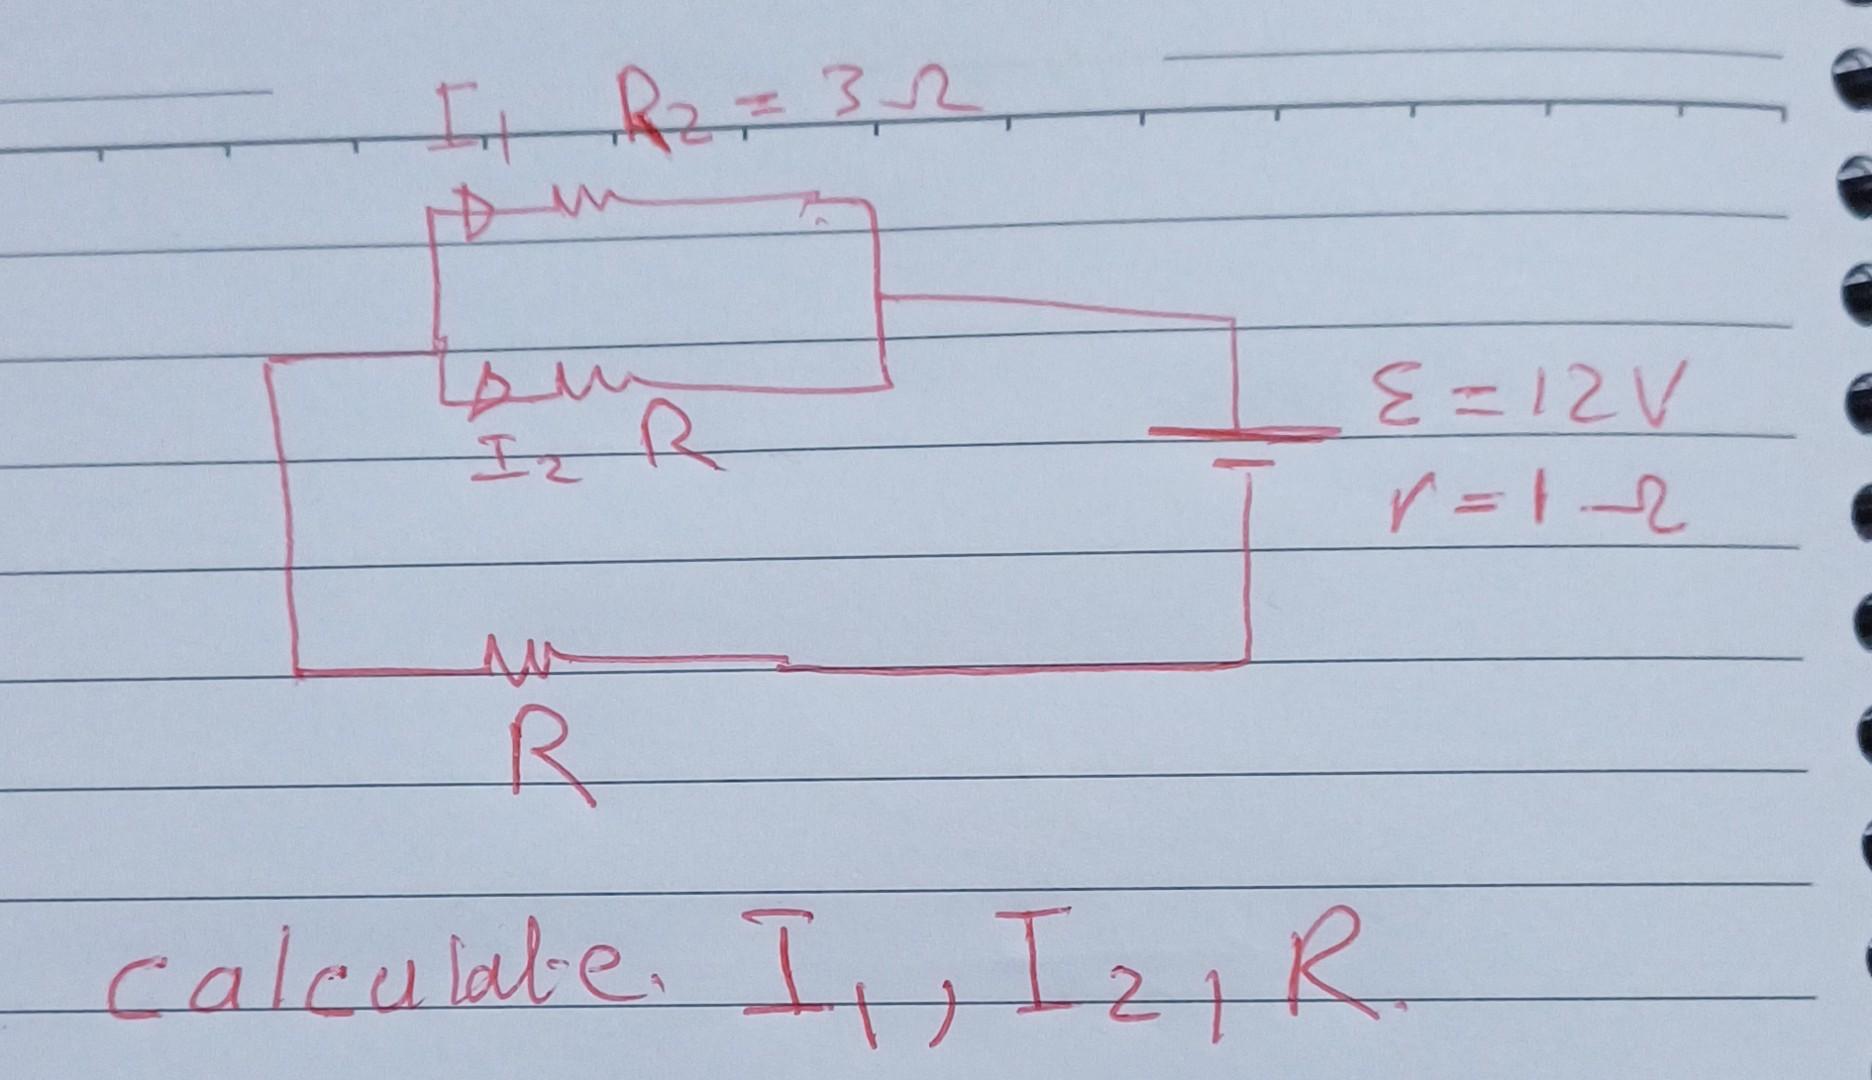 I₁ R₂ = 3 Ω
I₂ R
ε = 12 V
r = 1 Ω
R
calculate. I₁, I₂, R.